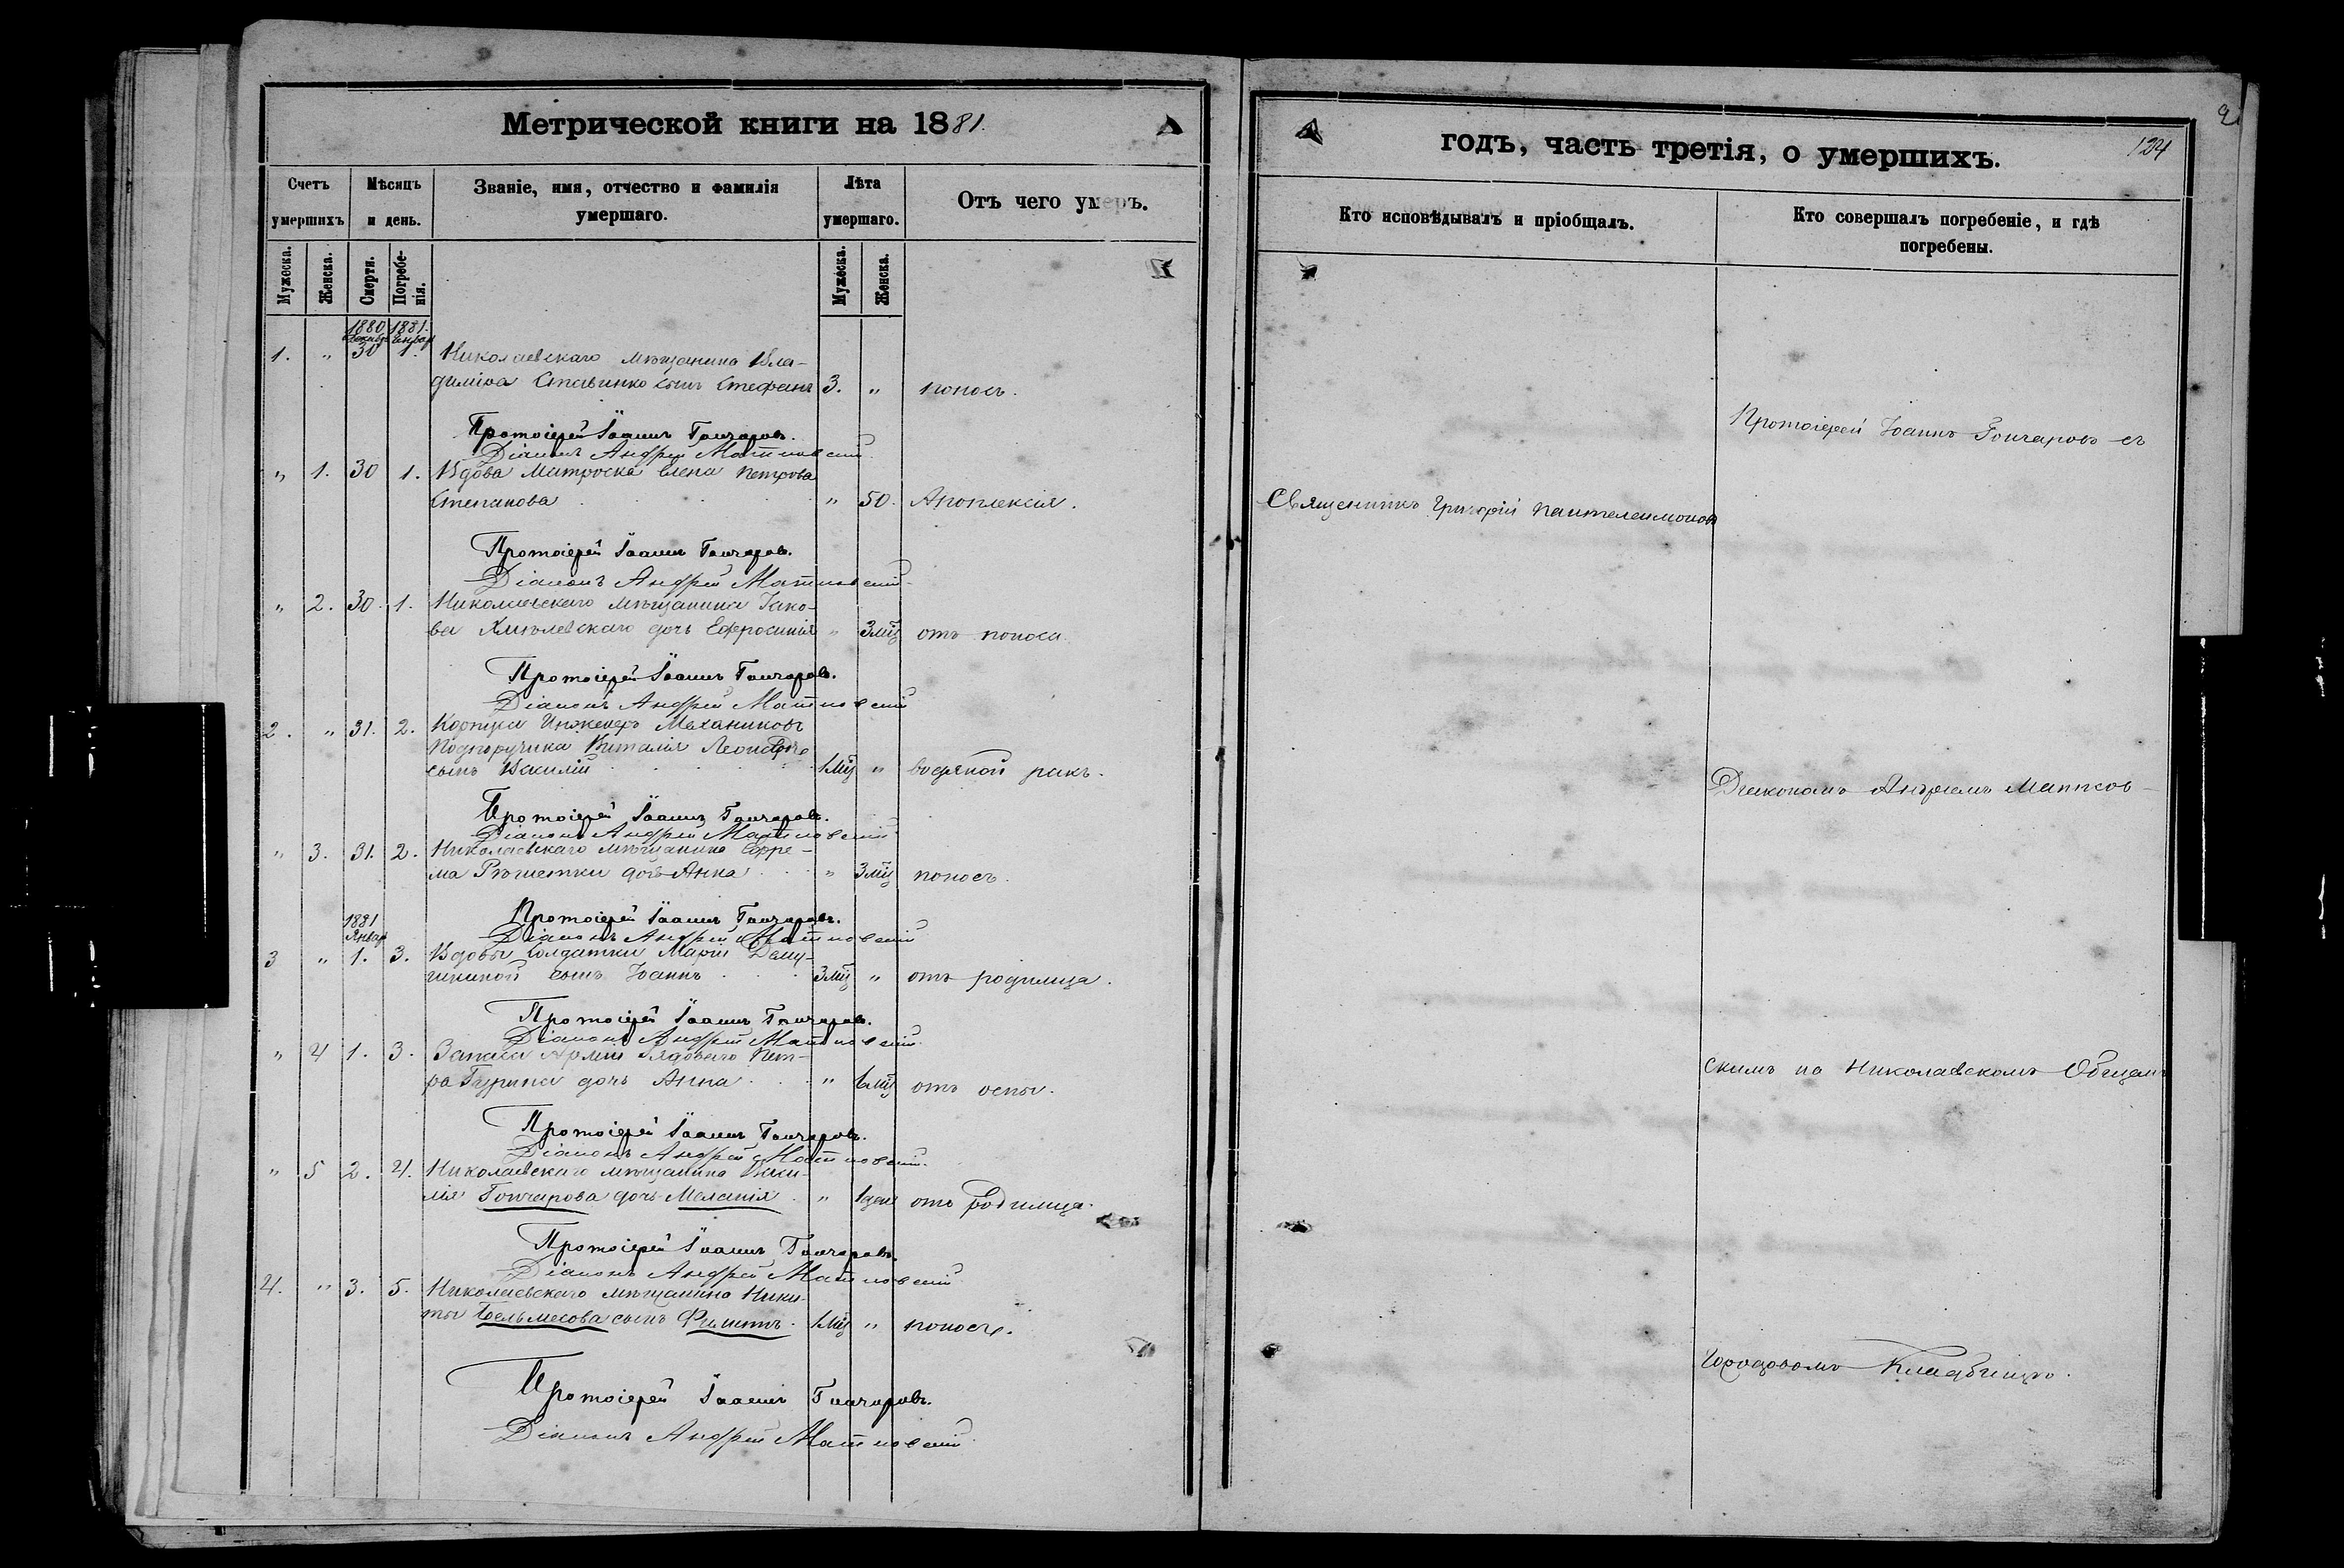 Метрической книги на 1881.
Счетъ умершихъ
Мѣсяцъ и день.
Званіе, имя, отчество и фамилія умершаго.
Лѣта умершаго.
Отъ чего умеръ.
Мужеска.
Женска.
Смерти.
Погребенія.
Мужеска.
Женска.
1880 1881.
Декабр Январ
1. " 30 1. Николаевскаго мѣщанина Вла-
диміра Ставинко сынъ Стефанъ 3. " поносъ.
Протоіерей Іоаннъ Гончаровъ.
Діаконъ Андрей Матковскій
" 1. 30 1. Вдова Матроска Елена Петрова
Степанова " 50. Апоплексія.
Протоіерей Іоаннъ Гончаровъ.
Діаконъ Андрей Матковскій
" 2. 30. 1. Николаевскаго мѣщанина Іако-
ва Хмѣлевскаго дочь Ефросинія " 3 мц отъ поноса
Протоіерей Іоаннъ Гончаровъ.
Діаконъ Андрей Матковскій
2. " 31. 2. Корпуса Инженеръ Механиковъ
Подпоручика Виталія
сынъ Василій 1 мц " водяной ракъ.
Протоіерей Іоаннъ Гончаровъ.
Діаконъ Андрей Матковскій
" 3. 31. 2. Николаевскаго мѣщанина Ефре-
ма Рѣшетки дочь Анна " 3 мц поносъ.
Протоіерей Іоаннъ Гончаровъ.
Діаконъ Андрей Матковскій
1881
Январ
3 " 1. 3. Вдовы солдатки Маріи
сынъ Іоаннъ 3 мц " отъ родимца.
Протоіерей Іоаннъ Гончаровъ.
Діаконъ Андрей Матковскій
" 4 1. 3. Запаса Арміи Рядоваго Пет-
ра Гурина дочь Анна " мц отъ оспы.
Протоіерей Іоаннъ Гончаровъ.
Діаконъ Андрей Матковскій
" 5 2. 4. Николаевскаго мѣщанина Васи-
лія Гончарова дочь Меланія " 1 ден отъ родимца.
Протоіерей Іоаннъ Гончаровъ.
Діаконъ Андрей Матковскій
4. " 3. 5. Николаевскаго мѣщанина Ники-
ты Бельмесова сынъ Филиппъ. 1 мц " поносъ.
Протоіерей Іоаннъ Гончаровъ.
Діаконъ Андрей Матковскій
годъ, часть третія, о умершихъ.
124
Кто исповѣдывалъ и пріобщалъ.
Кто совершалъ погребеніе, и гдѣ погребены.
Протоіерей Іоаннъ Гончаровъ съ
Священникъ Григорій Пантелеимонов
Діакономъ Андреемъ Матков-
скимъ на Николаевскомъ Общемъ
Городовомъ Кладбищѣ.